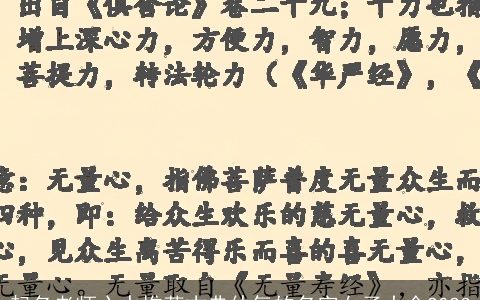 出自《俱舍论》卷二十九；十力也指
增上深心力，方便力，智力，愿力，
菩提力，转法轮力（《华严经》，《
意：无量心，指佛菩萨普度无量众生而
四种，即：给众生欢乐的慈无量心，救
心，见众生离苦得乐而喜的喜无量心，
无量心。无量取自《无量寿经》，亦指